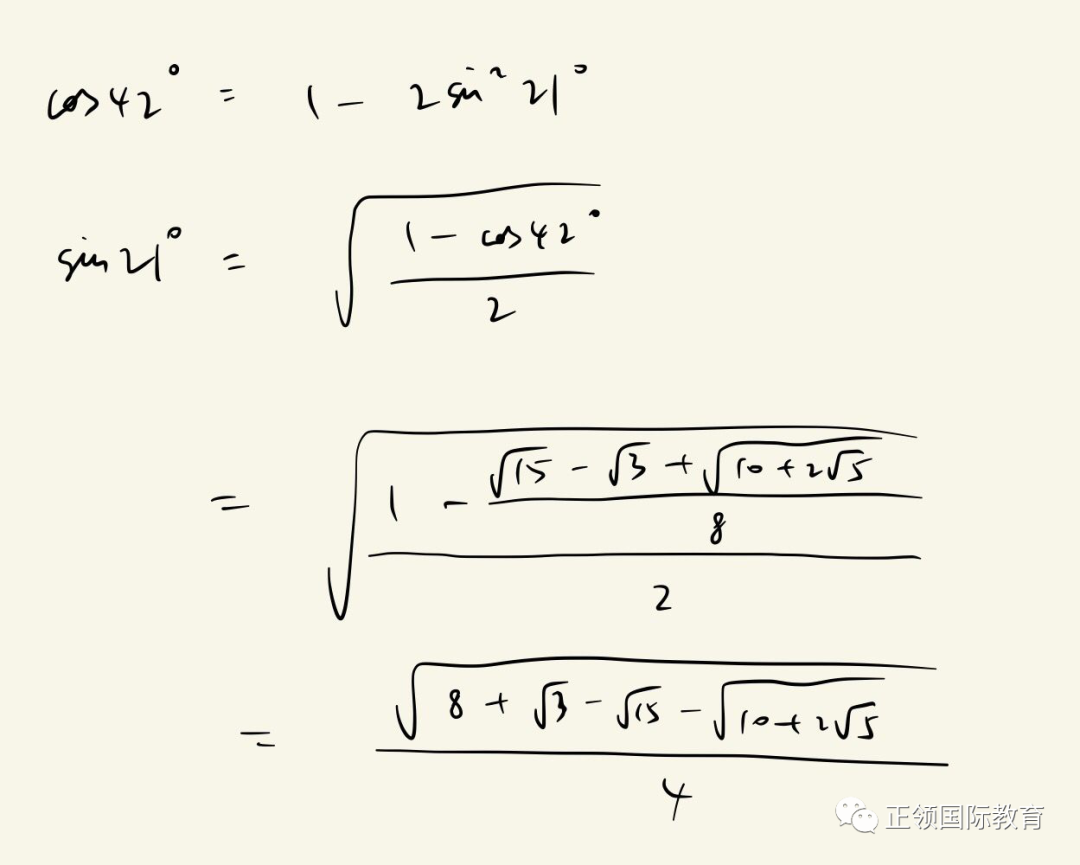 cos42° = 1 - 2sin²21°
sin21° = √((1 - cos42°)/2)
= √((1 - (√15 - √3 + √(10 + 2√5))/8)/2)
= √(8 + √3 - √15 - √(10 + 2√5))/4
正领国际教育